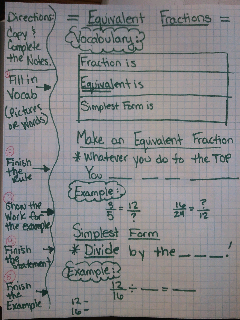 Directions:
Copy &
Complete
the Notes.
Fill in
Vocab
(Pictures
or Words)
Finish
the Rule
Show the
Work for
the example
Finish
the Statement
Finish
the
Example
= Equivalent Fractions =
Vocabulary:
Fraction is
Equivalent is
Simplest Form is
Make an Equivalent Fraction
* Whatever you do to the TOP
You __ __ __
Example:
3/5 = 12/? 16/24 = ?/12
Simplest Form
* Divide by the _ _ _!
Example:
12/16 ÷ __ = __
12 -
16 -